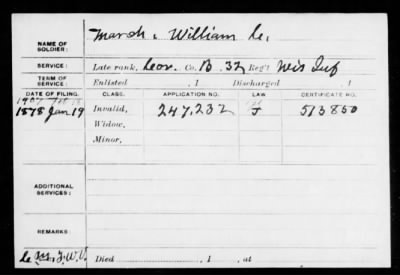 NAME OF SOLDIER: Marsh, William C.
SERVICE: Late rank, Corp. Co. B. 32 Reg't Wis Inf
TERM OF SERVICE: Enlisted , 1 Discharged , 1
DATE OF FILING. CLASS. APPLICATION NO. LAW CERTIFICATE NO.
1907 Feb
1878 Jan 19 Invalid, 247,232 513850
Widow,
Minor,
ADDITIONAL SERVICES:
REMARKS:
Died , 1 , at